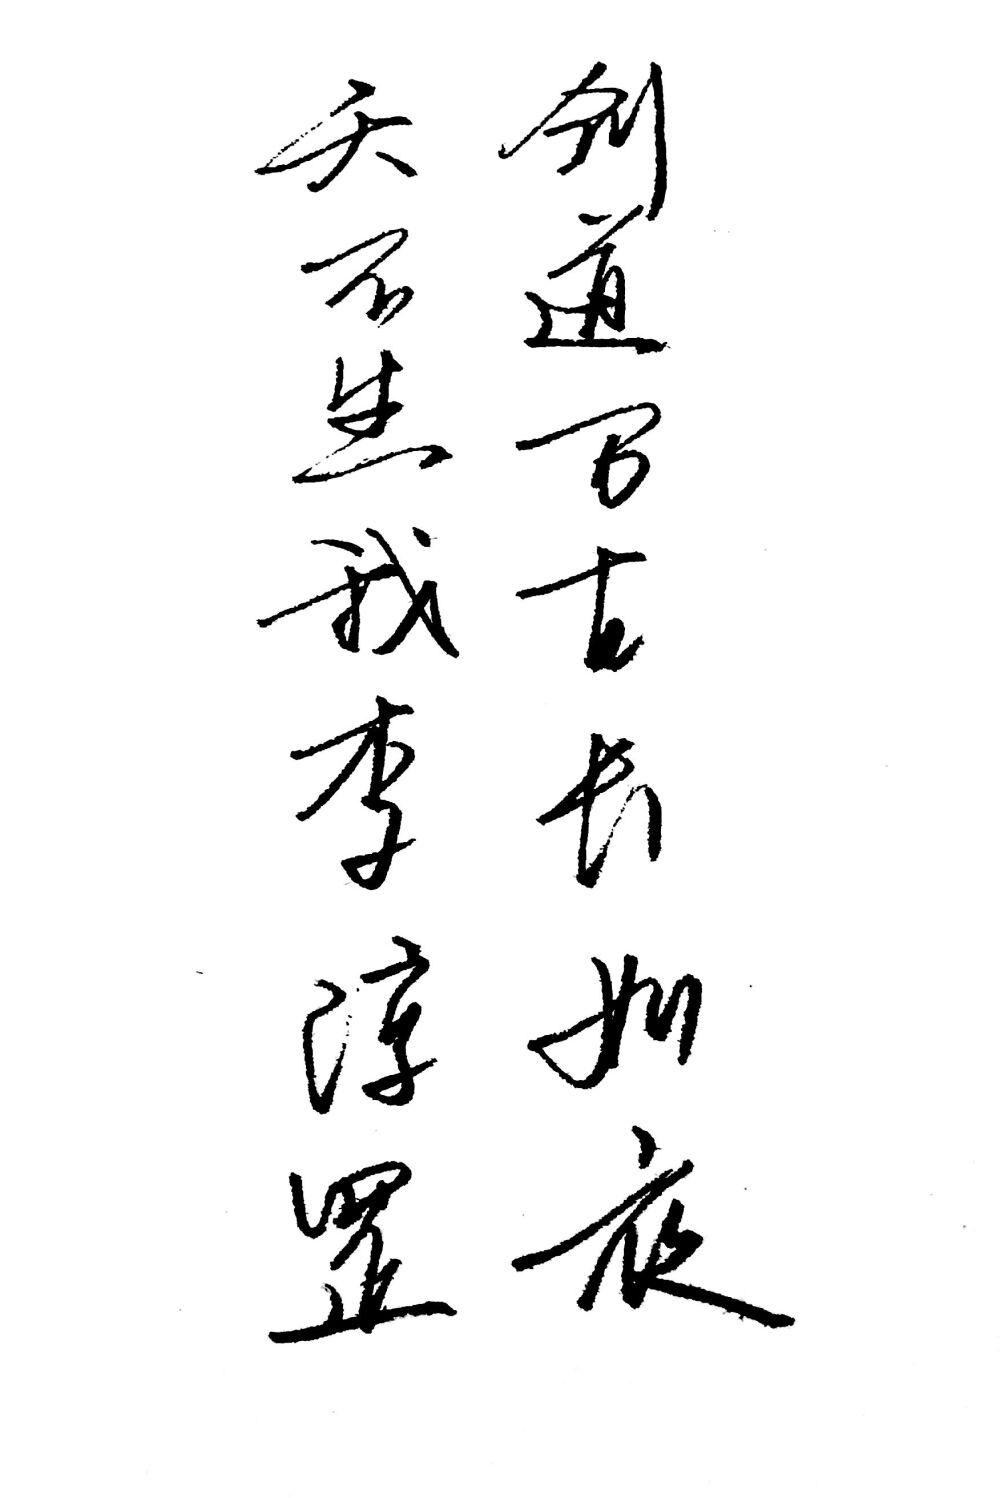 剑道万古长如夜
天不生我李淳罡